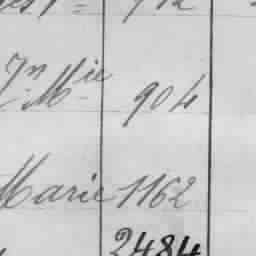 Jn Mie 904
Marie 1162
2484